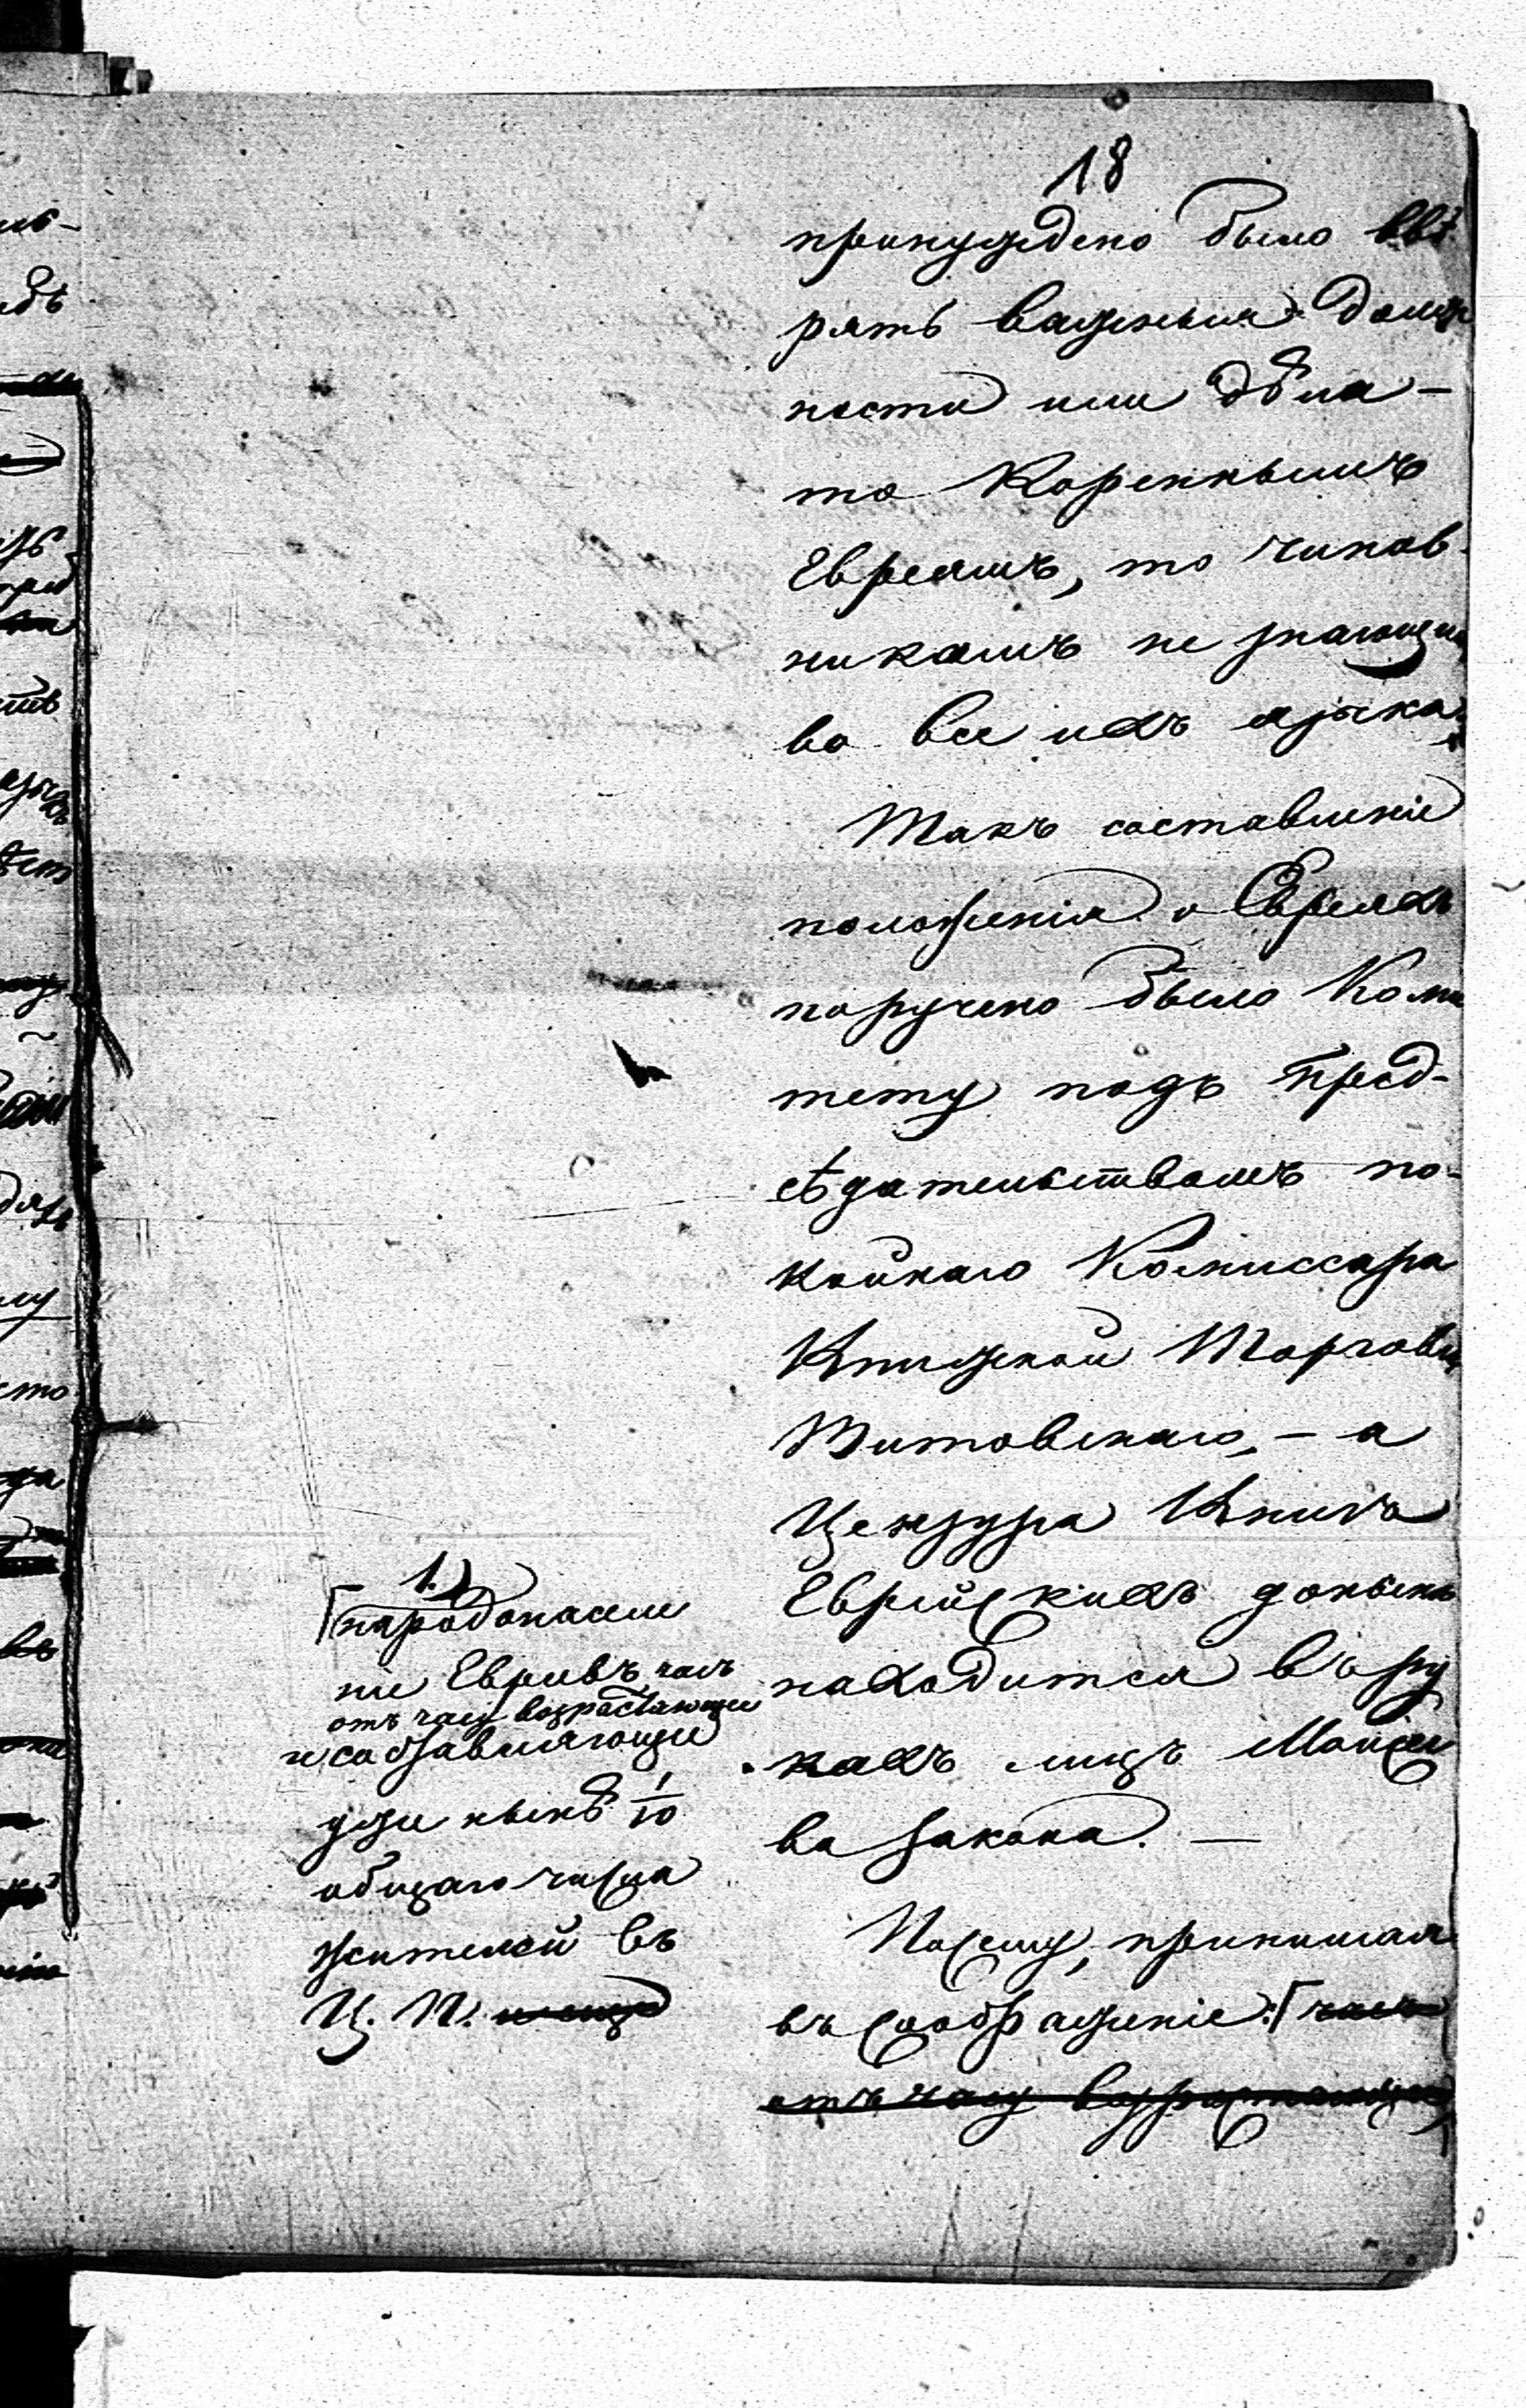 18
принуждено было ввѣ
рять важныя долж
ности или дѣла —
то Кореннымъ
Евреямъ, то чинов-
никамъ не знающим
во все ихъ языка.
Такъ составленіе
положенія о Евреяхъ
поручено было Коми
тету подъ Пред-
сѣдательствомъ по-
койнаго Комиссара
Книжной Торговли
Витовскаго, — а
Цензура Книгъ
Еврейскихъ донынѣ
находится въ ру
кахъ лицъ Моисее
ва Закона. —
Посему, принимая
въ соображеніе: часъ
отъ часу возрастающее
1.)
народонаселе
ніе Евреевъ часъ
отъ часу возрастающее
и составляющее
уже нынѣ 1/10
общаго числа
жителей въ
Ц. П.